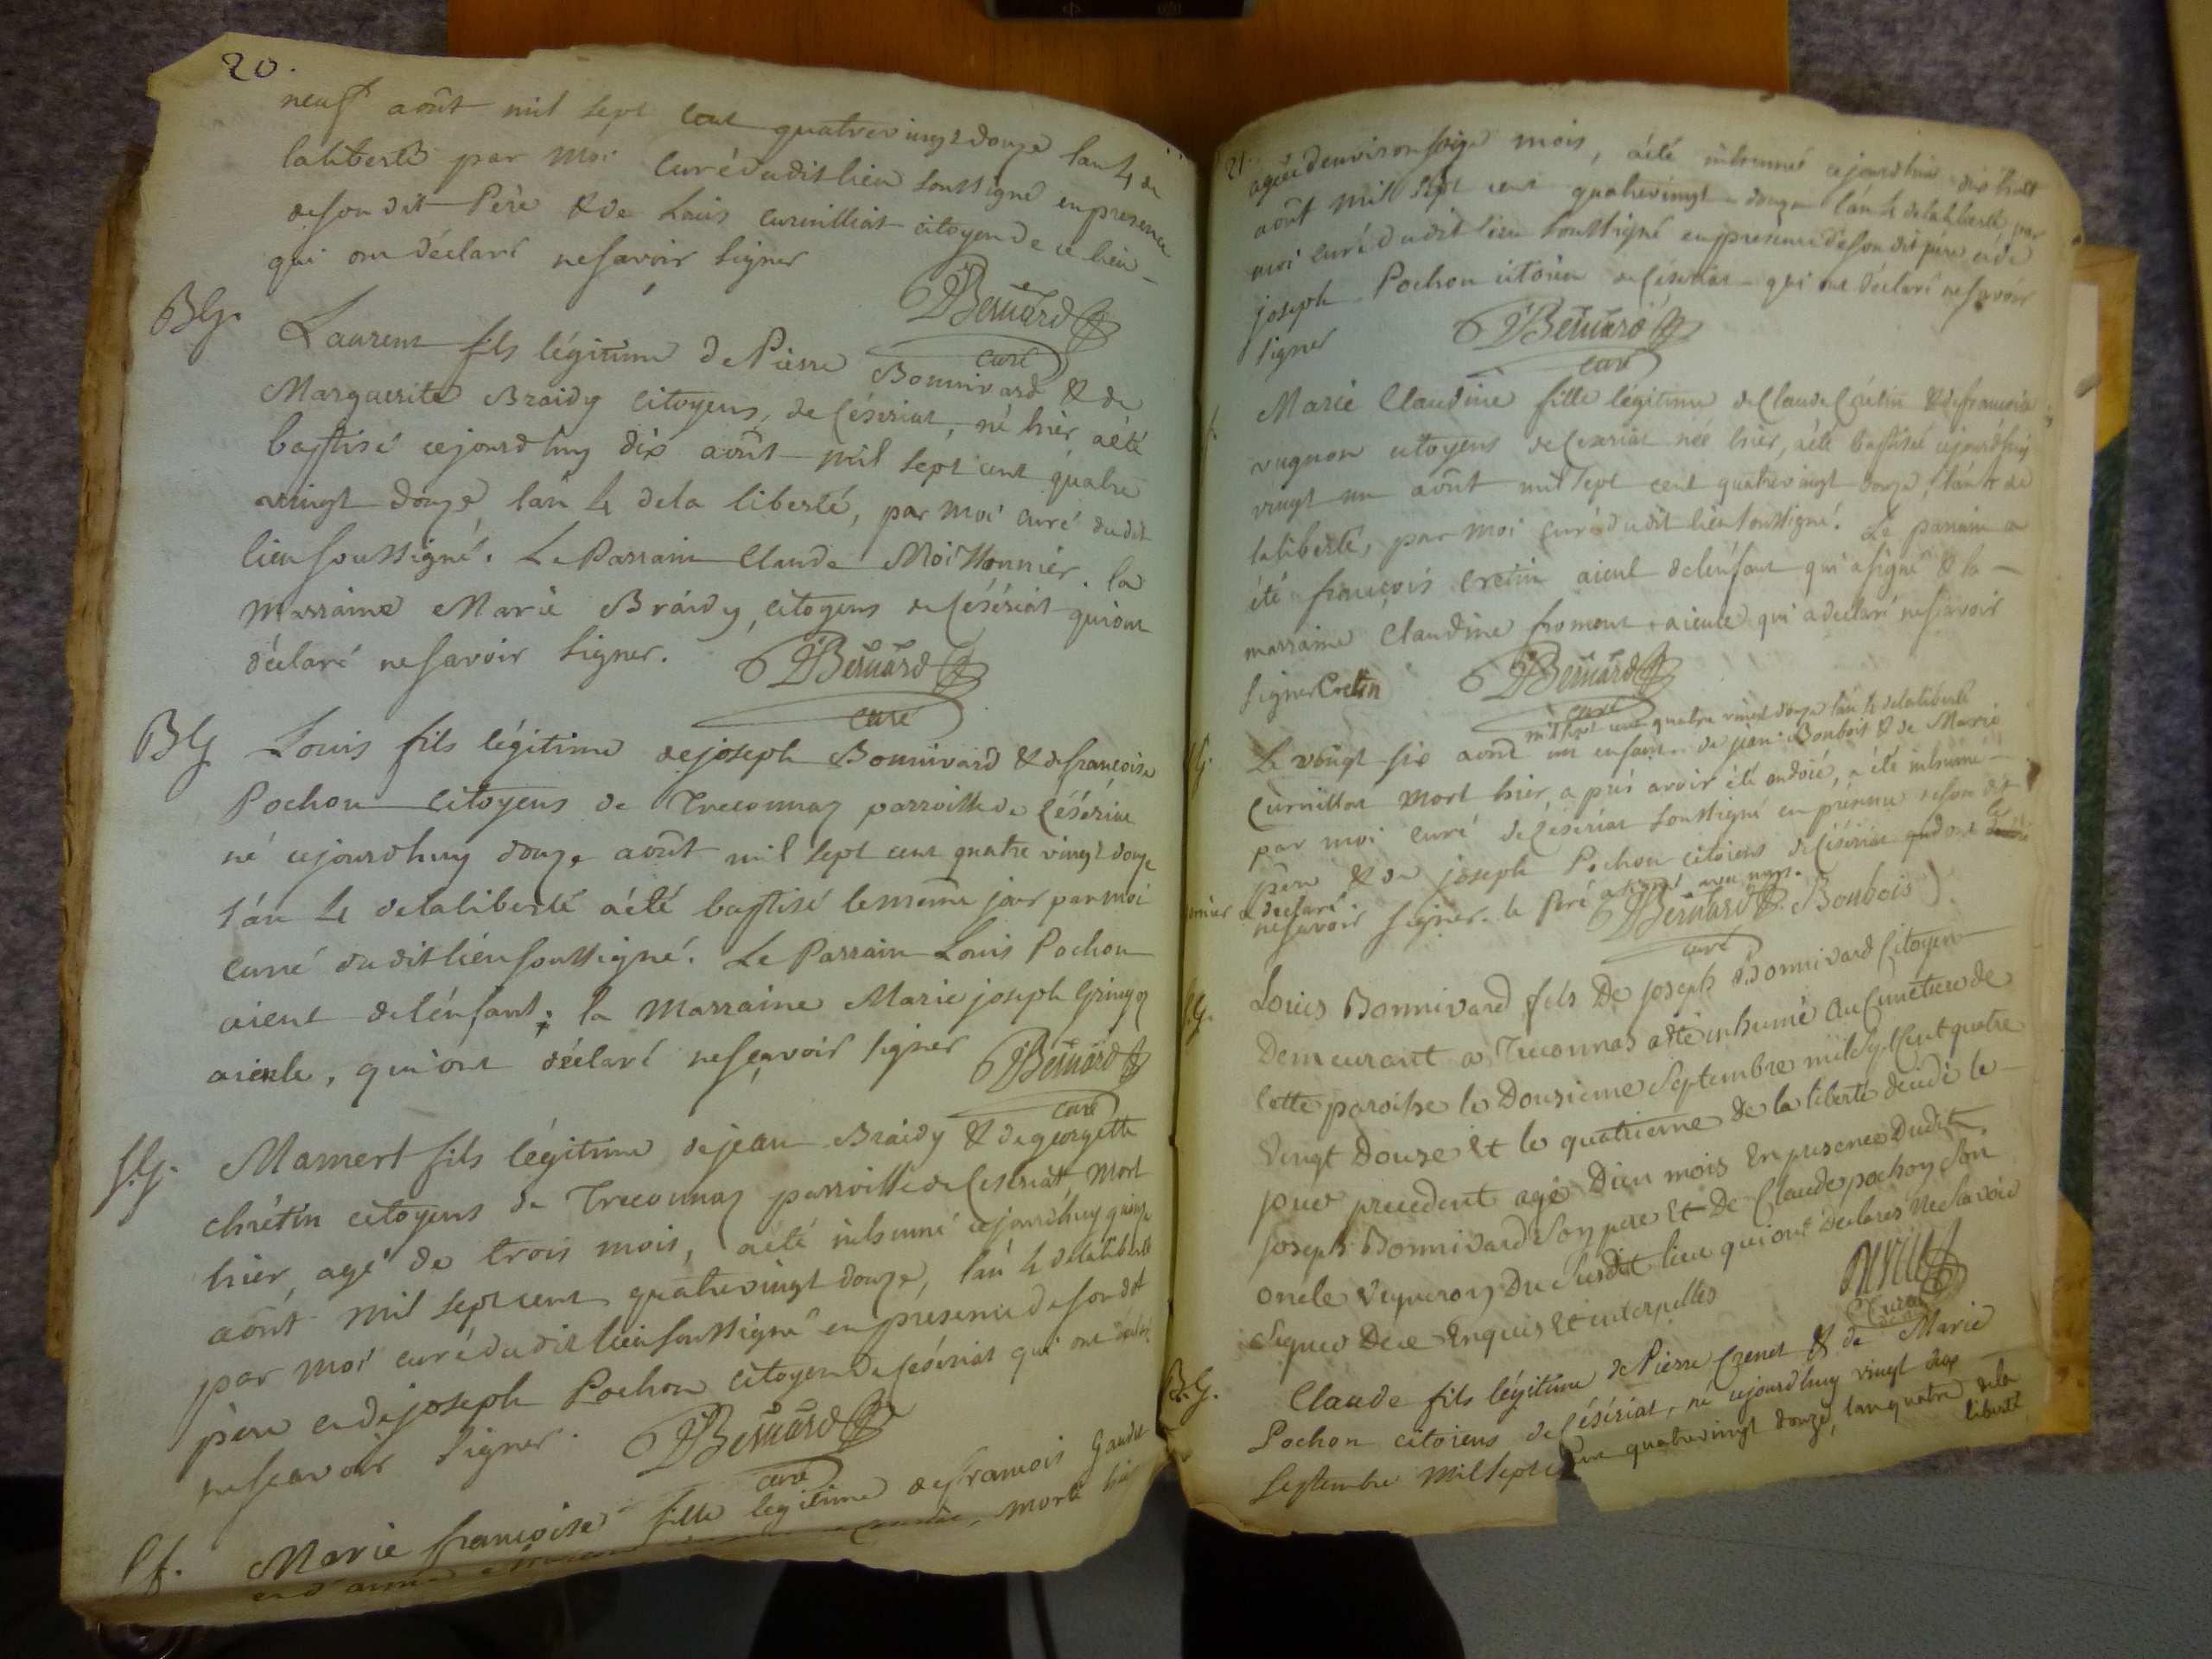 20.
neuf août mil sept cent quatrevingt douze lan 4 de
laliberté par moi curé dudit lieu soussigné enpresence
desondit Père & de Louis curnilliat citoyen de ce lieu –
qui ont déclaré nesavoir signer
DBernard
curé
BG. Laurent fils légitime de Pierre Bonnivard & de
Marguerite Braidy citoyens, de Céseriat, né hier aété
baptisé cejourdhuy dix août mil sept cent quatre
vingt douze lán 4 dela liberté, par moi curé dudit
lieu soussigné. Le Parrain Claude Moissonnier. la
marraine Marie Bráidy, citoyens de Céseriat quiont
déclaré nesavoir signer.
DBernard
curé
BG Louis fils légitime dejoseph Bonnivard & defrancoise
Pochon citoyens de Treconnaz parroisse de Céseriat
né cejourdhuy douze août mil sept cent quatre vingt douze
l'án 4 delaliberté aété baptisé lemême jour parmoi
curé dudit lieu soussigné. Le Parrain Louis Pochon
aieul delénfant; la marraine Marie joseph Gringoz
aieule, quiont déclaré nesçavoir signer
DBernard
curé
S.G. Mamert fils légitime dejean Braidy & degeorgette
chrétin citoyens de Treconnaz parroisse de Ceseriat, mort
hier, agé de trois mois, aété inhumé cejourdhuy quinze
août mil sept cent quatrevingt douze, lán 4 delaliberté
par moi curé dudit lieu soussigné enpresence desondit
père endejoseph Pochon citoyen de Céseriat qui ont déclaré
nesçavoir signer.
DBernard
curé
Sf. Marie françoise fille légitime defrancois Gaudet
morte hier
21
agée denviron seize mois, aété inhumée cejourdhui dix huit
août mil sept cent quatrevingt douze lán 4 delaliberté par
moi curé dudit lieu soussigné enpresence desondit père & de
joseph Pochon citoien de Céseriat qui ont déclaré nesavoir
signer
DBernard
curé
Marie Claudine fille légitime declaude Crétin & defrancoise
vugnon citoyens de Ceseriat née hier, aété baptisée cejourdhuy
vingt un août mil sept cent quatrevingt douze, lán 4 de
laliberté, par moi curé dudit lieu soussigné. Le parrain a
été françois cretin aieul delénfant qui asigné & la –
marraine Claudine fromont aieule qui adeclaré nesavoir
signer Cretin
DBernard
curé
mil sept cent quatre vingt douze lán 4 delaliberté
G. Le vingt six août un enfant de jean Bonbois & de Marie
Curnillat mort hier, a prés avoir été ondoié, a été inhumé –
par moi curé de Céseriat soussigné en présence deson dit
père & de joseph Pochon citoiens de Céseriat
a declaré
nesavoir signer. le Péré a signé avec nous.
DBernard
curé
Bonbois
S.G. Louis Bonnivard fils De Joseph Bonnivard Citoyen
Demeurant a Treconnas aété inhumé au Cimetiere de
Cette paroisse le Dousieme Septembre mil Sept Cent quatre
Vingt Douse Et le quatrieme de la liberté decedé le
jour precedent agé Dun mois En presence Dudit
Joseph Bonnivard Son pere Et De Claude pochon Son
oncle Vigneron Du Susdit lieu qui ont Declarés Ne Savoir
Signer De ce Enquis Et interpellés
Curé
B.G. Claude fils légitime de Pierre Crenet & de Marie
Pochon citoiens de Céseriat, né cejourdhuy vingt deux
Septembre mil sept cent quatrevingt douze, lan quatre dela
liberté